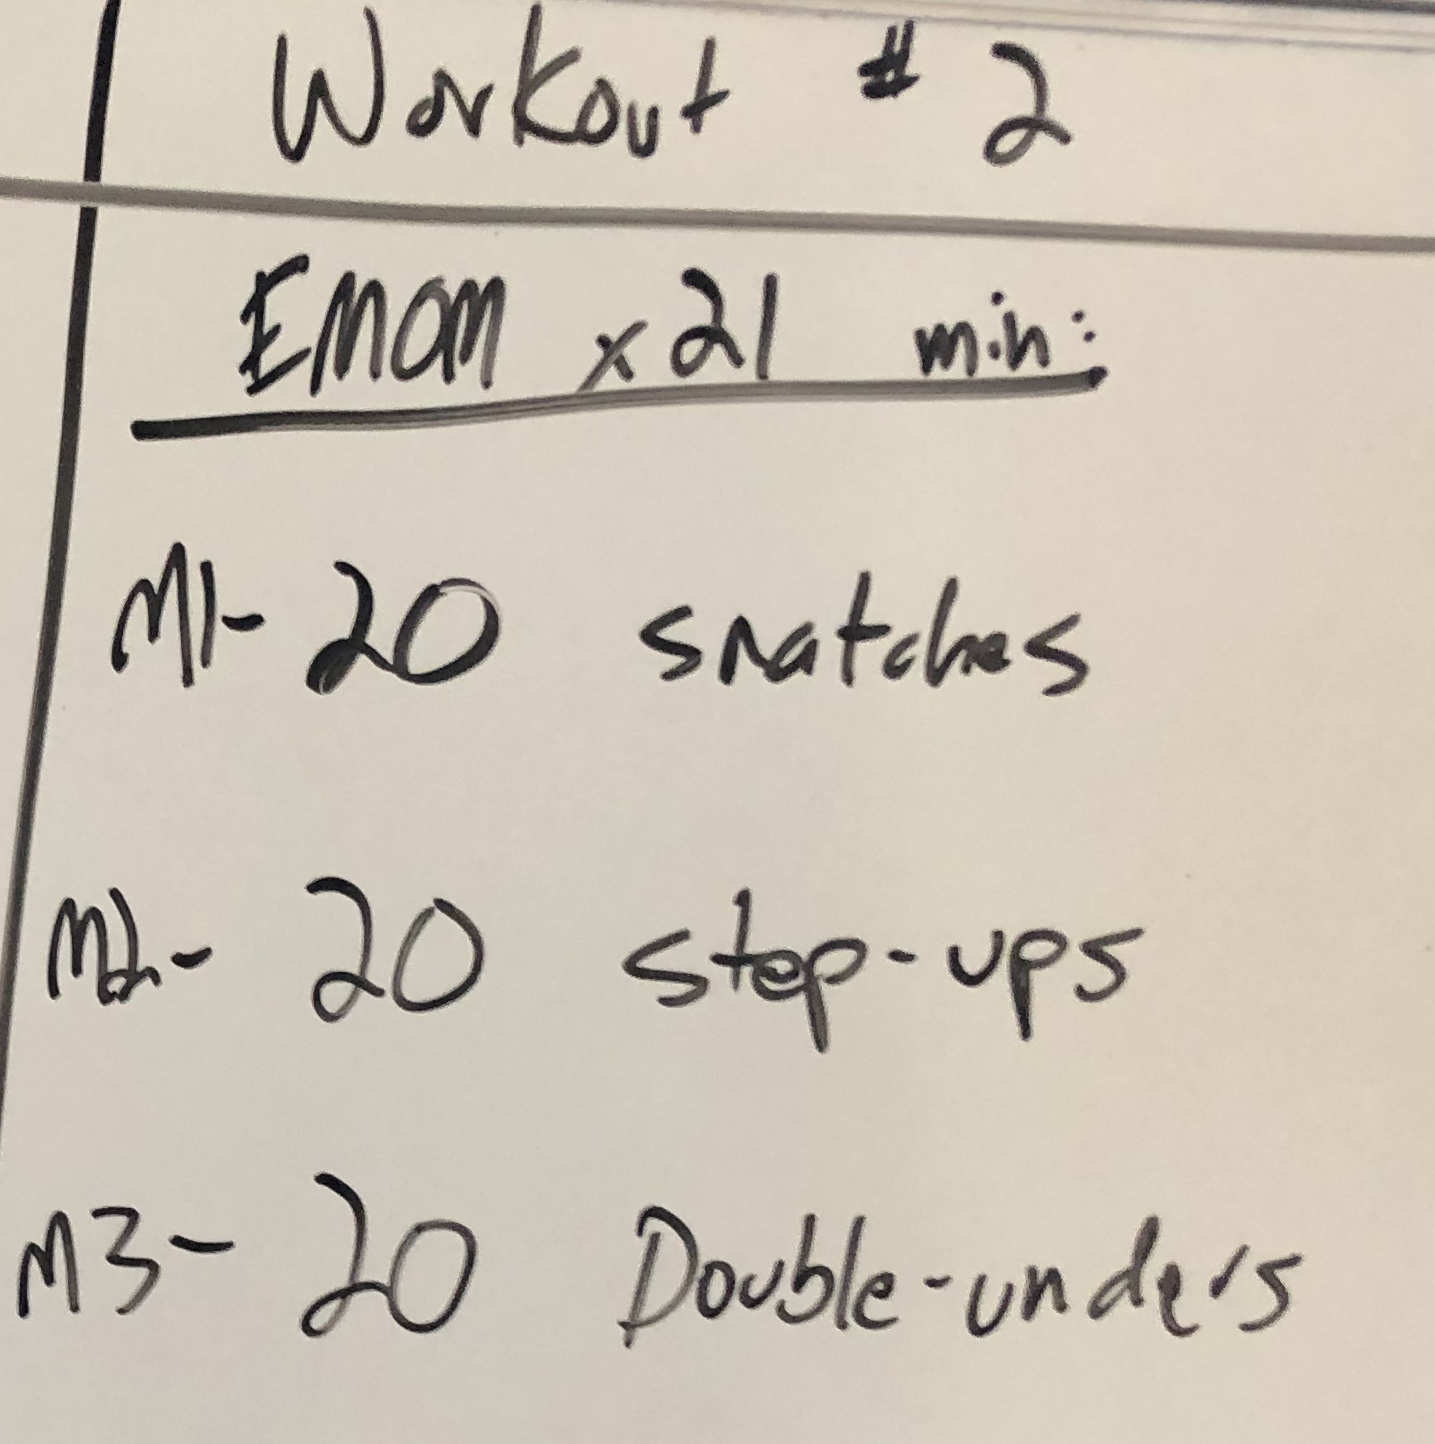 Workout # 2
EMOM x 21 min:
M1- 20 snatches
M2- 20 step-ups
M3- 20 Double-unders